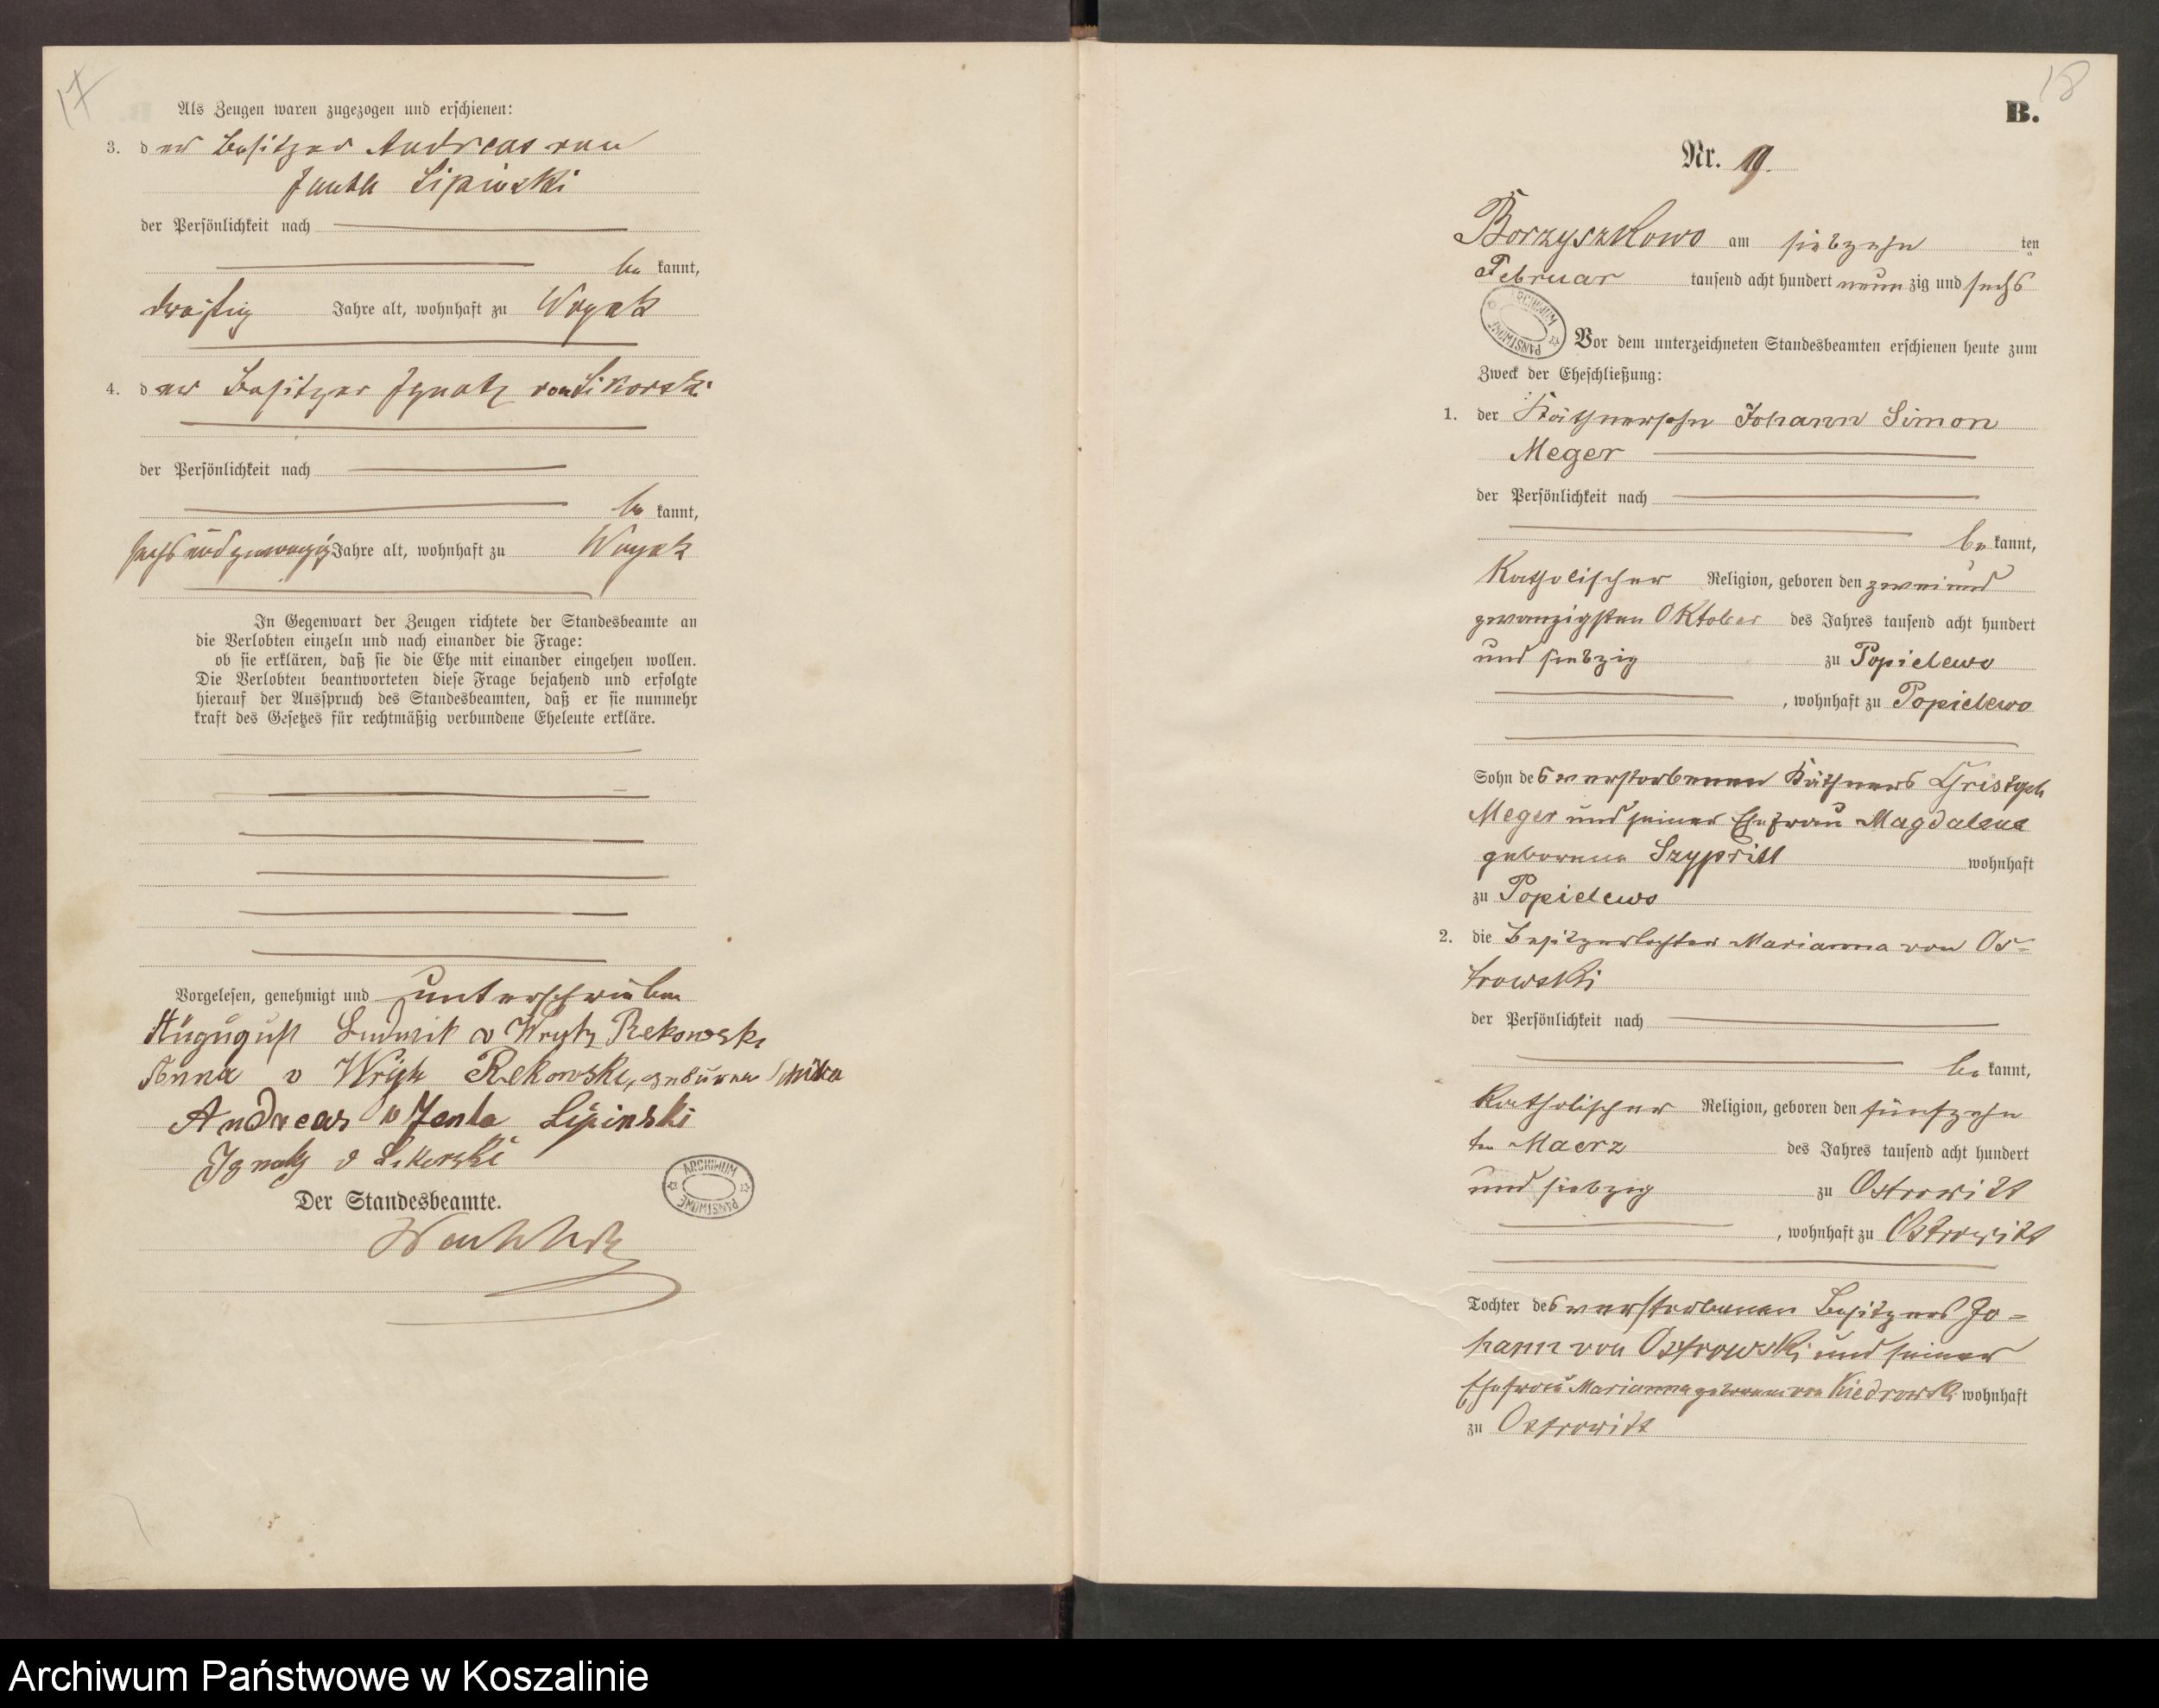 17
Als Zeugen waren zugezogen und erschienen:
3. der Besitzer Andreas von
Janta Lipinski
der Persönlichkeit nach
be kannt,
dreißig Jahre alt, wohnhaft zu Woysk
4. der Besitzer Ignatz von Sikorski
der Persönlichkeit nach
be kannt,
sechs und zwanzig Jahre alt, wohnhaft zu Woysk
In Gegenwart der Zeugen richtete der Standesbeamte an
die Verlobten einzeln und nach einander die Frage:
ob sie erklären, daß sie die Ehe mit einander eingehen wollen.
Die Verlobten beantworteten diese Frage bejahend und erfolgte
hierauf der Ausspruch des Standesbeamten, daß er sie nunmehr
kraft des Gesetzes für rechtmäßig verbundene Eheleute erkläre.
Vorgelesen, genehmigt und unterschrieben
Ludwik v Wrycz Rekowski
Anna v Wrycz Rekowski, geborene
Andreas v Janta Lipinski
Ignatz v Sikorski
ARCHIWUM PAŃSTWOWE
Der Standesbeamte.
18
B.
Nr. 19.
Borzyszkowo am siebzehn ten
Februar tausend acht hundert neun zig und sechs
ARCHIWUM PAŃSTWOWE
Vor dem unterzeichneten Standesbeamten erschienen heute zum
Zweck der Eheschließung:
1. der Käthnersohn Johann Simon
Meger
der Persönlichkeit nach
be kannt,
Katholischer Religion, geboren den zwei und
zwanzigsten Oktober des Jahres tausend acht hundert
und siebzig zu Popielewo
, wohnhaft zu Popielewo
Sohn des verstorbenen Käthners
Meger und seiner Ehefrau Magdalena
geborene Szypritt wohnhaft
zu Popielewo
2. die Besitzertochter Marianna von Os-
trowski
der Persönlichkeit nach
be kannt,
Katholischer Religion, geboren den fünfzehn
ten Maerz des Jahres tausend acht hundert
und siebzig zu Ostrowitt
, wohnhaft zu Ostrowitt
Tochter des verstorbenen Besitzers Jo-
hann von Ostrowski und seiner
Ehefrau Marianna geborene von Kiedrowski wohnhaft
zu Ostrowitt
Archiwum Państwowe w Koszalinie